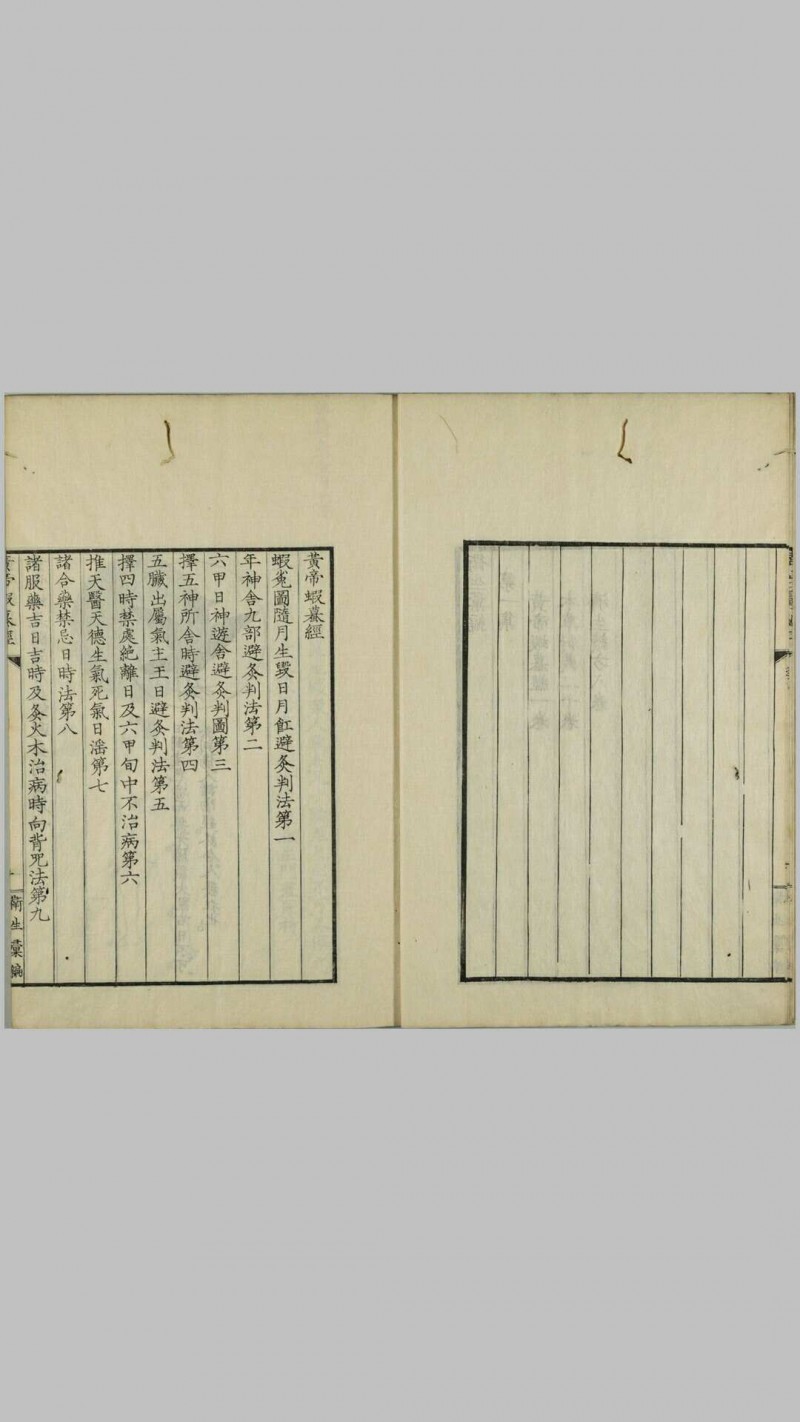 黃帝蝦蟇經
蝦兎圖隨月生毀日月㫔避灸判法第一
年神舍九部避灸判法第二
六甲日神遊舍避灸判圖第三
擇五神所舍時避灸判法第四
五臟出屬氣主王日避灸判法第五
擇四時禁處絶離日及六甲旬中不治病第六
推天醫天德生氣死氣日滛第七
諸合藥禁忌日時法第八
諸服藥吉日吉時及灸火木治病時向背咒法第九
黃帝蝦蟇經
衛生彙編